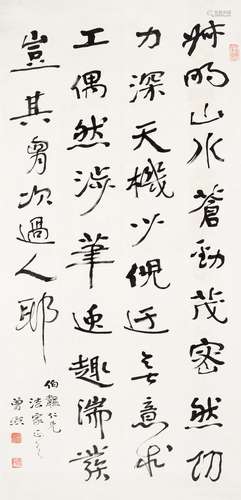 叔明山水蒼勁茂密然功
力深天機少倪迂無意求
工偶然涉筆逸趣湍發
豈其胷次過人耶
伯仁兄
法家正之
曾熙